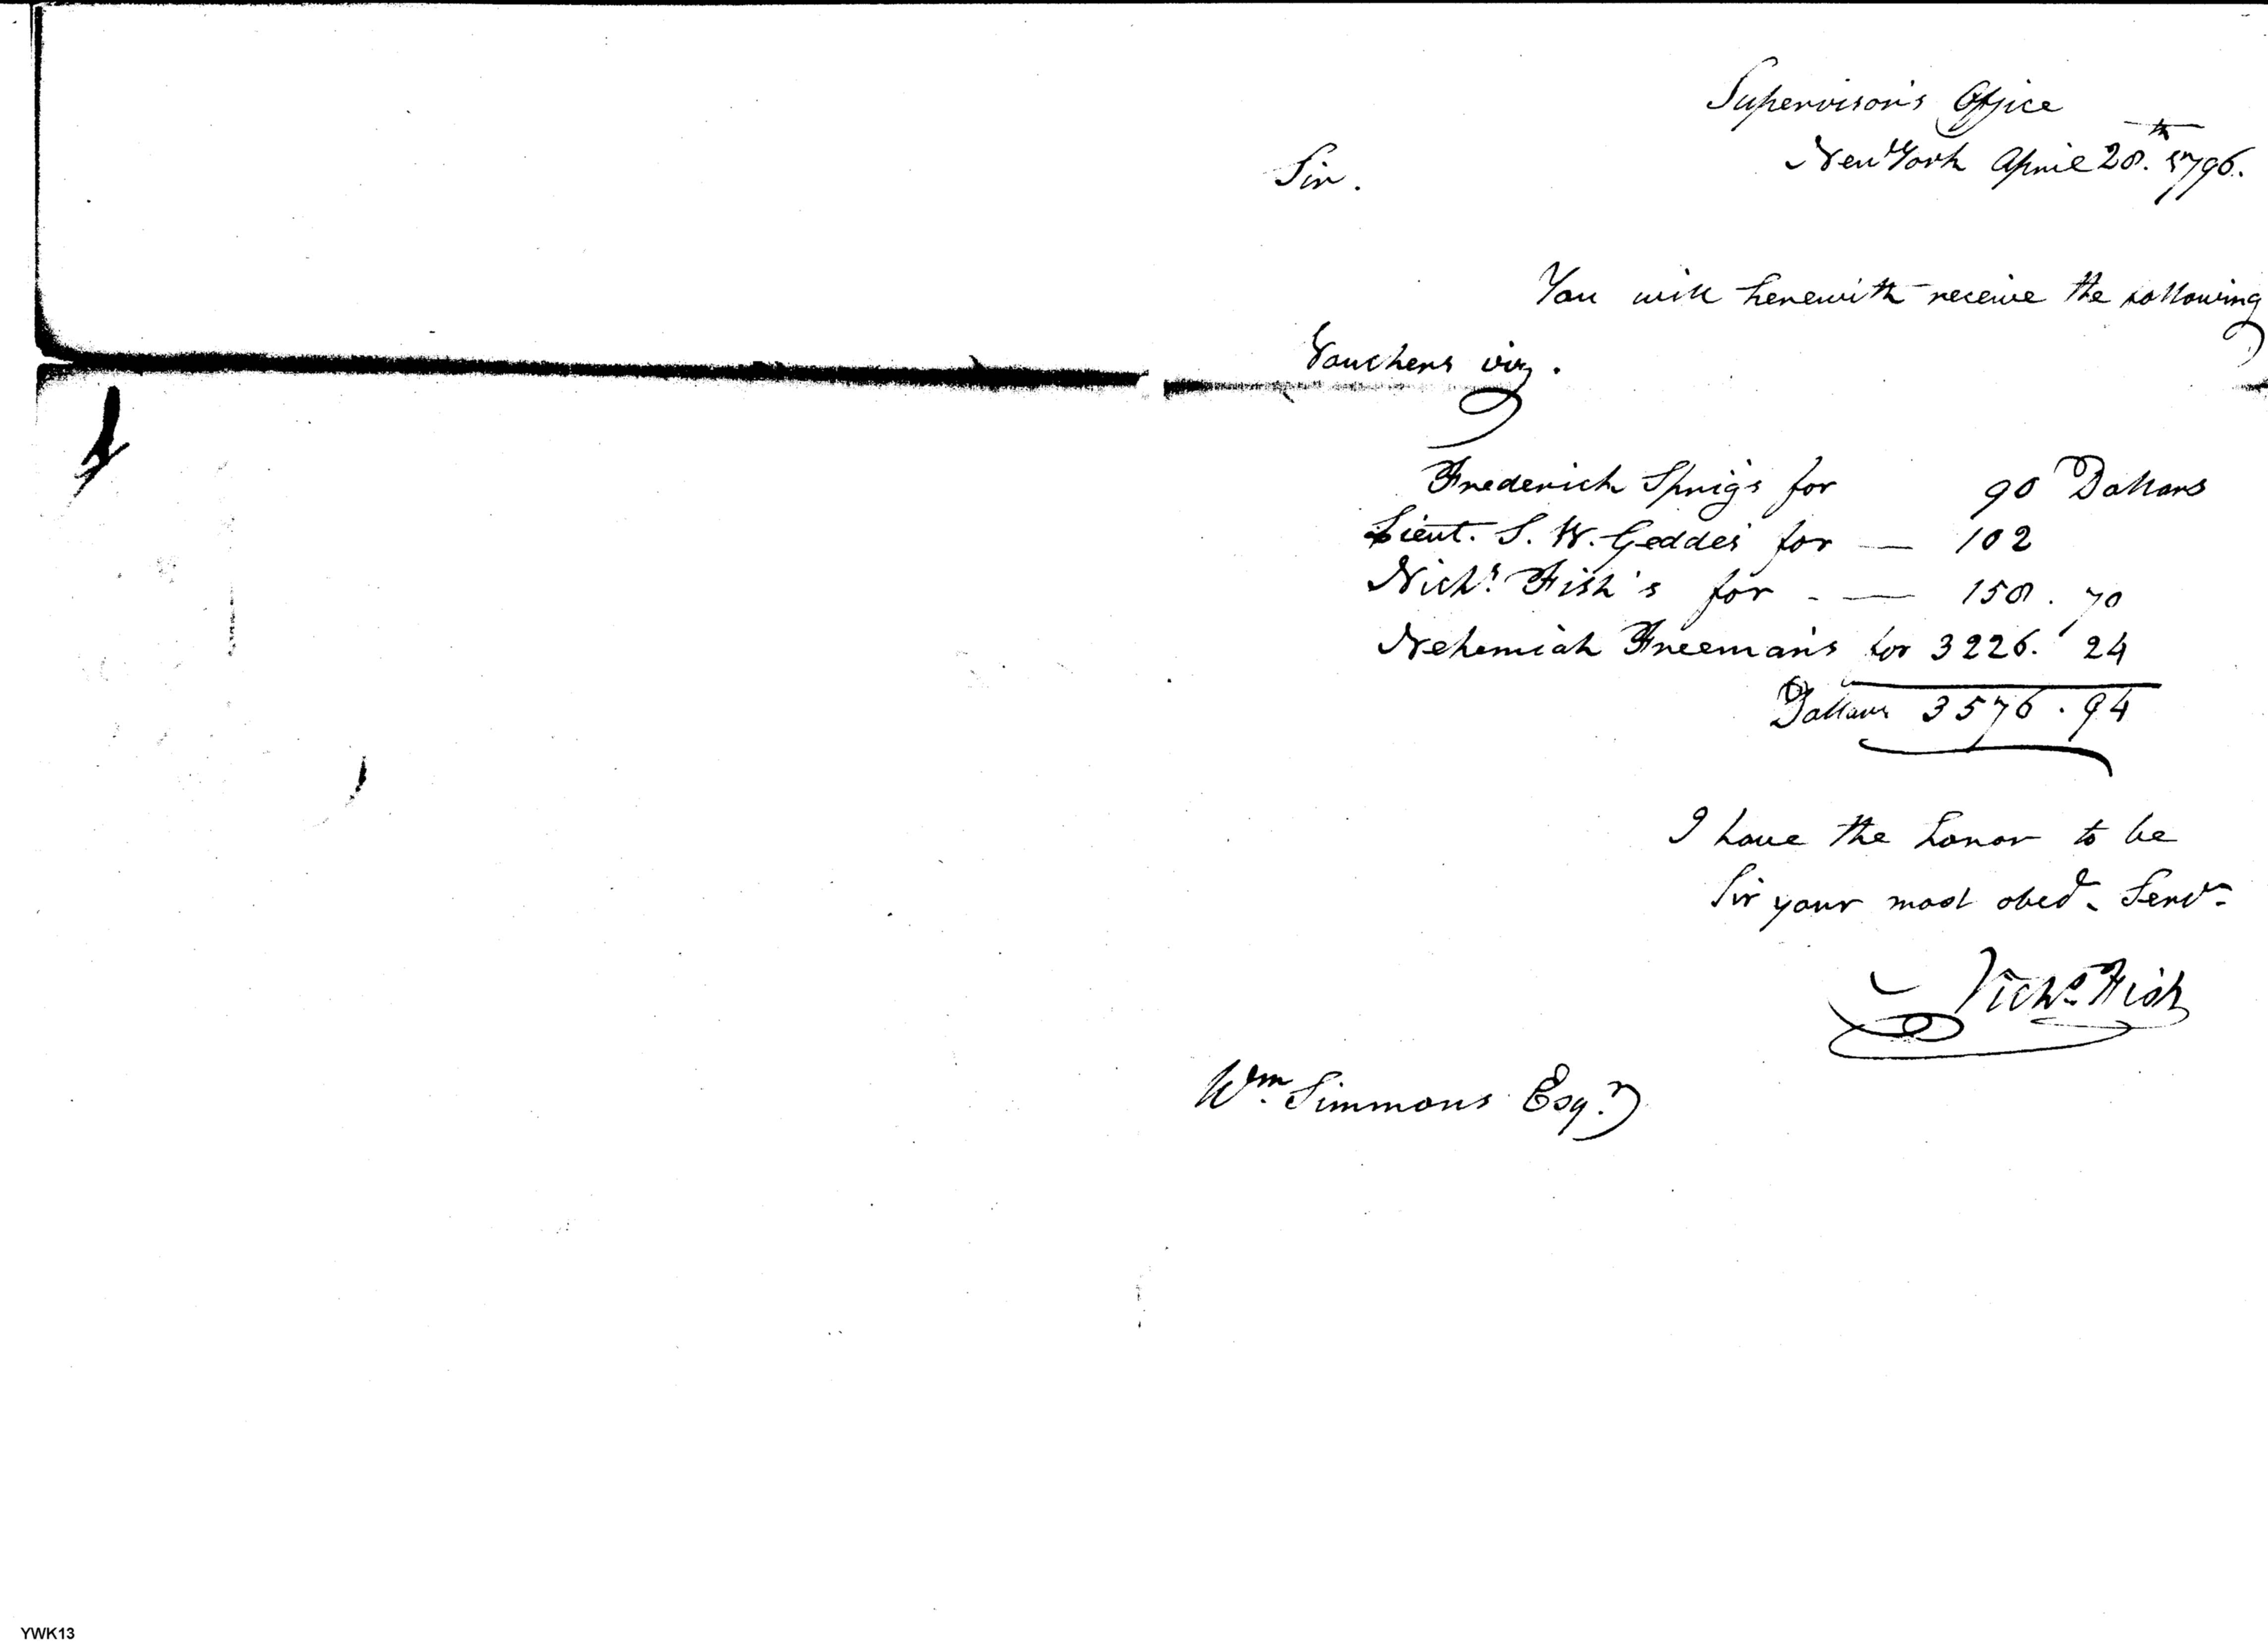 Supervisor's Office
New York April 28.th 1796.
Sir.
You will herewith receive the following
Vouchers viz.
Frederick Sprig's for 90 Dollars
Lieut. S. W. Geddes for — 102
Nichs. Fish's for - — 158.70
Nehemiah Freeman's for 3226.24
Dollars 3576.94
I have the honor to be
Sir your most obed. Servt.
Nichs Fish
Wm. Simmons Esqr.
YWK13